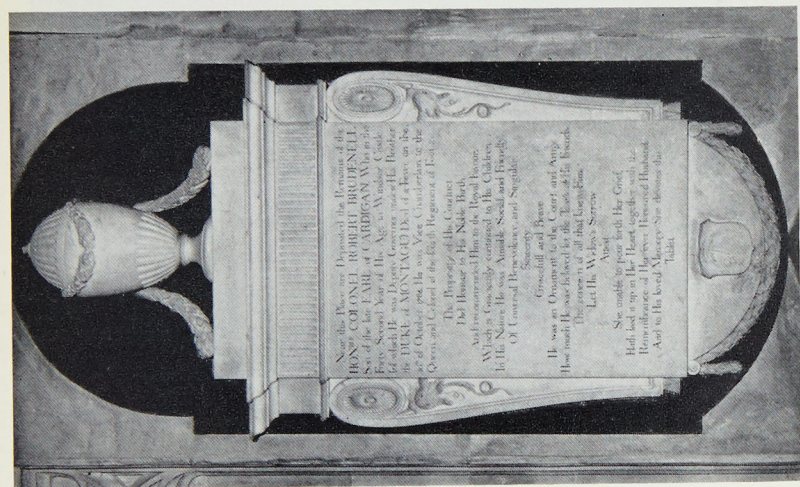 Near this Place are Deposited the Remains of the
HON:BLE COLONEL ROBERT BRUDENELL
Son of the late EARL of CARDIGAN, Who in the
Forty Second Year of His Age, at Windsor Castle
(of which He was Deputy Governor under His Brother
the DUKE of MONTAGU) Died of a Fever on the
of October 1768. He was Vice Chamberlain to the
Queen, and Colonel of the Fourth Regiment of Foot.
The Propriety of His Conduct
Did Honour to His Noble Birth,
And recommended Him to the Royal Favour,
Which is Graciously continued to His Children.
In His Nature He was Amiable, Social, and Friendly
Of Universal Benevolence, and Singular
Sincerity
Graceful and Brave
He was an Ornament to the Court, and Army.
How much He was beloved let the Tears of His Friends
The concern of all that knew Him
Let His Widow's Sorrow
Attest
She unable to pour forth Her Grief,
Hath lock'd up in Her Heart, together with the
Remembrance of Her ever Honoured Husband
And to His loved Memory She devotes this
Tablet